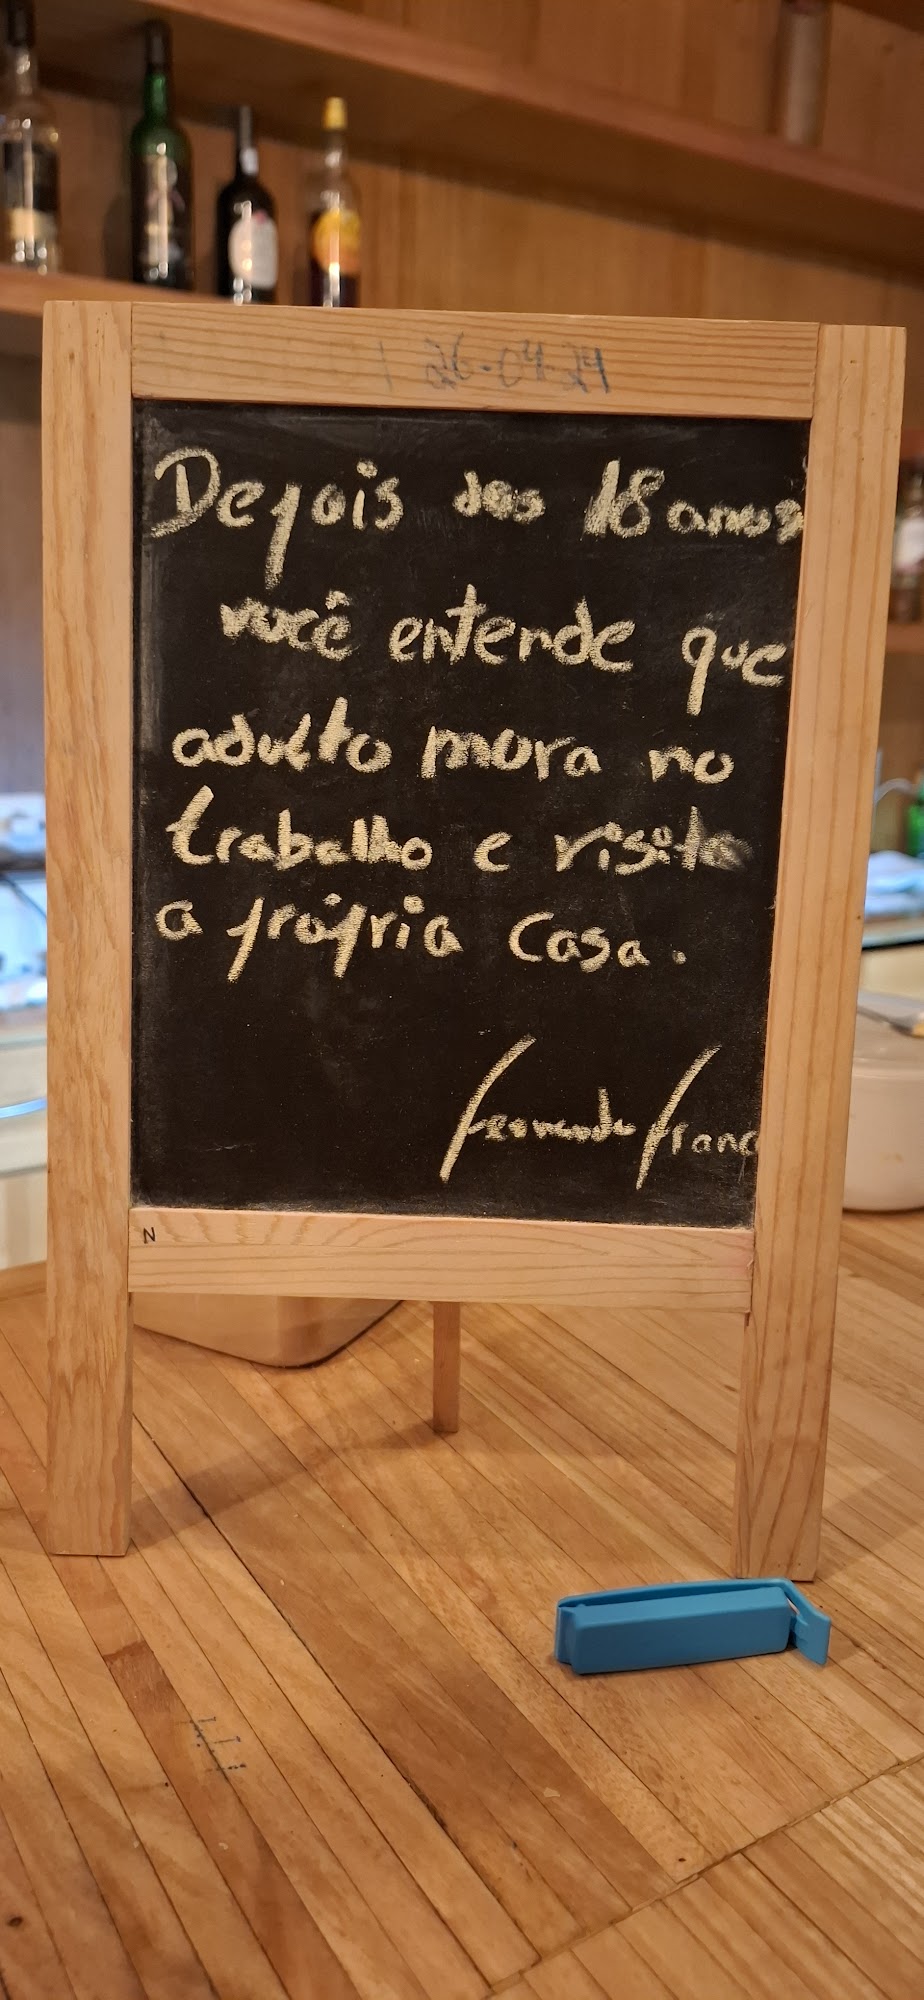 26-04-24
Depois dos 18 anos
você entende que
adulto mora no
trabalho e visita
a própria casa.
Fernando Franç
N